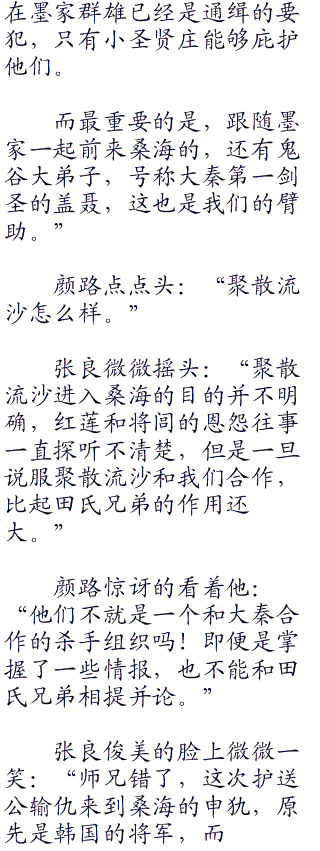 在墨家群雄已经是通缉的要
犯，只有小圣贤庄能够庇护
他们。
而最重要的是，跟随墨
家一起前来桑海的，还有鬼
谷大弟子，号称大秦第一剑
圣的盖聂，这也是我们的臂
助。”
颜路点点头：“聚散流
沙怎么样。”
张良微微摇头：“聚散
流沙进入桑海的目的并不明
确，红莲和将闾的恩怨往事
一直探听不清楚，但是一旦
说服聚散流沙和我们合作，
比起田氏兄弟的作用还
大。”
颜路惊讶的看着他：
“他们不就是一个和大秦合
作的杀手组织吗！即便是掌
握了一些情报，也不能和田
氏兄弟相提并论。”
张良俊美的脸上微微一
笑：“师兄错了，这次护送
公输仇来到桑海的申犰，原
先是韩国的将军，而